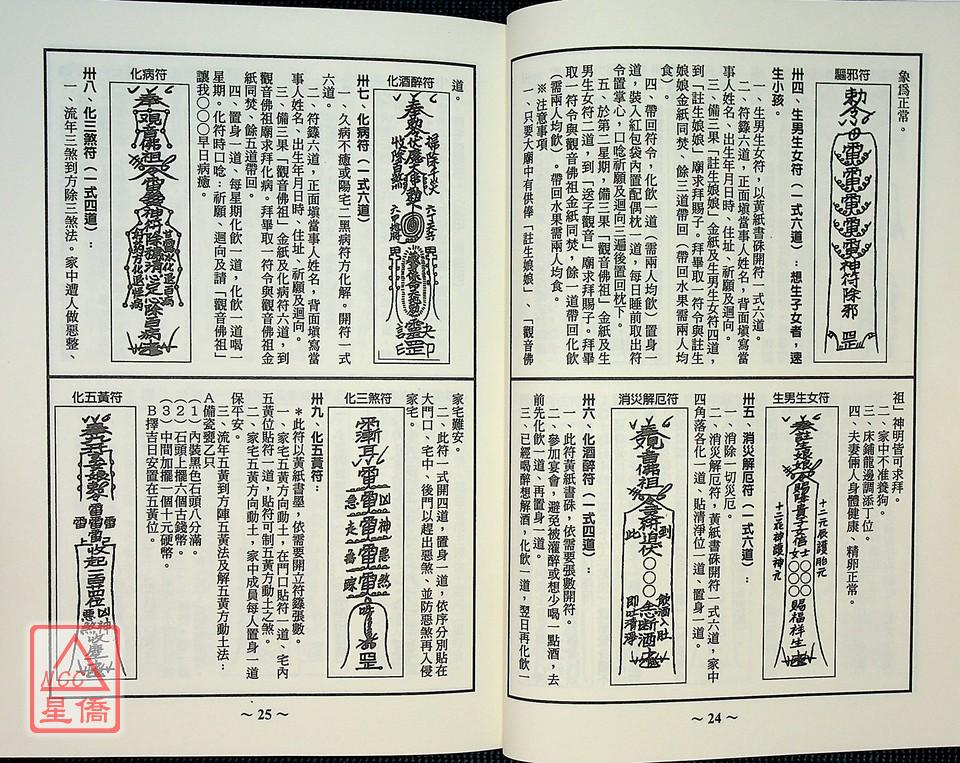 象為正常。
驅邪符
勅令
神符除邪
罡
卅四、生男生女符（一式六道）：想生子女者，速
生小孩。
一、生男生女符，以黃紙書硃開符一式六道。
二、符籙六道，正面填當事人姓名，背面填寫當
事人姓名、出生年月日時、住址、祈願及迴向。
三、備三果「註生娘娘」金紙及生男生女符四道，
到「註生娘娘」廟求拜賜子。拜畢取一符令與註生
娘娘金紙同焚、餘三道帶回（帶回水果需兩人均
食）。
四、帶回符令，化飲一道（需兩人均飲）置身一
道，裝入紅包袋內置配偶枕一道，每日睡前取出符
令置掌心，口唸祈願及迴向三遍後置回枕下。
五、於第二星期，備三果「觀音佛祖」金紙及生
男生女符二道，到「送子觀音」廟求拜賜子。拜畢
取一符令與觀音佛祖金紙同焚，餘一道帶回化飲
（需兩人均飲）。帶回水果需兩人均食。
※注意事項
一、只要大廟中有供俸「註生娘娘」、「觀音佛
祖」神明皆可求拜。
二、家中不准養狗。
三、床鋪龍邊調添丁位。
四、夫妻倆人身體健康、精卵正常。
生男生女符
十二元辰護胎元
十二花神護神元
賜福祥生
卅五、消災解厄符（一式六道）：
一、消除一切災厄。
二、消災解厄符，黃紙書硃開符一式六道，家中
四角落各化一道、貼清淨位一道、置身一道。
消災解厄符
到此
飲酒入肚
即吐清淨
卅六、化酒醉符（一式四道）：
一、此符黃紙書硃，依需要張數開符。
二、參加宴會，避免被灌醉或想少喝一點酒，去
前先化飲一道、再置身一道。
三、已經喝醉想解酒，化飲一道，翌日再化飲一
~ 24 ~
道。
化酒醉符
卅七、化病符（一式六道）
一、久病不癒或陽宅二黑病符方化解。開符一式
六道。
二、符籙六道，正面填當事人姓名，背面填寫當
事人姓名、出生年月日時、住址、祈願及迴向。
三、備三果「觀音佛祖」金紙及化病符六道，到
觀音佛祖廟求拜化病。拜畢取一符令與觀音佛祖金
紙同焚、餘五道帶回。
四、置身一道、每星期化飲一道，化飲一道喝一
星期。化符時口唸：祈願、迴向及請「觀音佛祖」
讓我○○○早日病癒。
化病符
卅八、化三煞符（一式四道）：
一、流年三煞到方除三煞法。家中遭人做惡整、
家宅難安。
二、此符一式開四道，置身一道，依序分別貼在
大門口、宅中、後門以趕出惡煞、並防惡煞再入侵
家宅。
化三煞符
凶神惡煞
卅九、化五黃符：
＊此符以黃紙書墨，依需要開立符籙張數。
一、家宅五黃方向動土，在門口貼符一道、宅內
五黃位貼符一道，貼符可制五黃方動土之煞。
二、家宅五黃方向動土，家中成員每人置身一道
保平安。
三、流年五黃到方陣五黃法及解五黃方動土法：
A備瓷甕乙只
（1）內裝黑色石頭八分滿。
（2）石頭上擺六個古錢幣。
（3）中間加擺一個十元硬幣。
B擇吉日安置在五黃位。
化五黃符
~ 25 ~
NCC
星僑